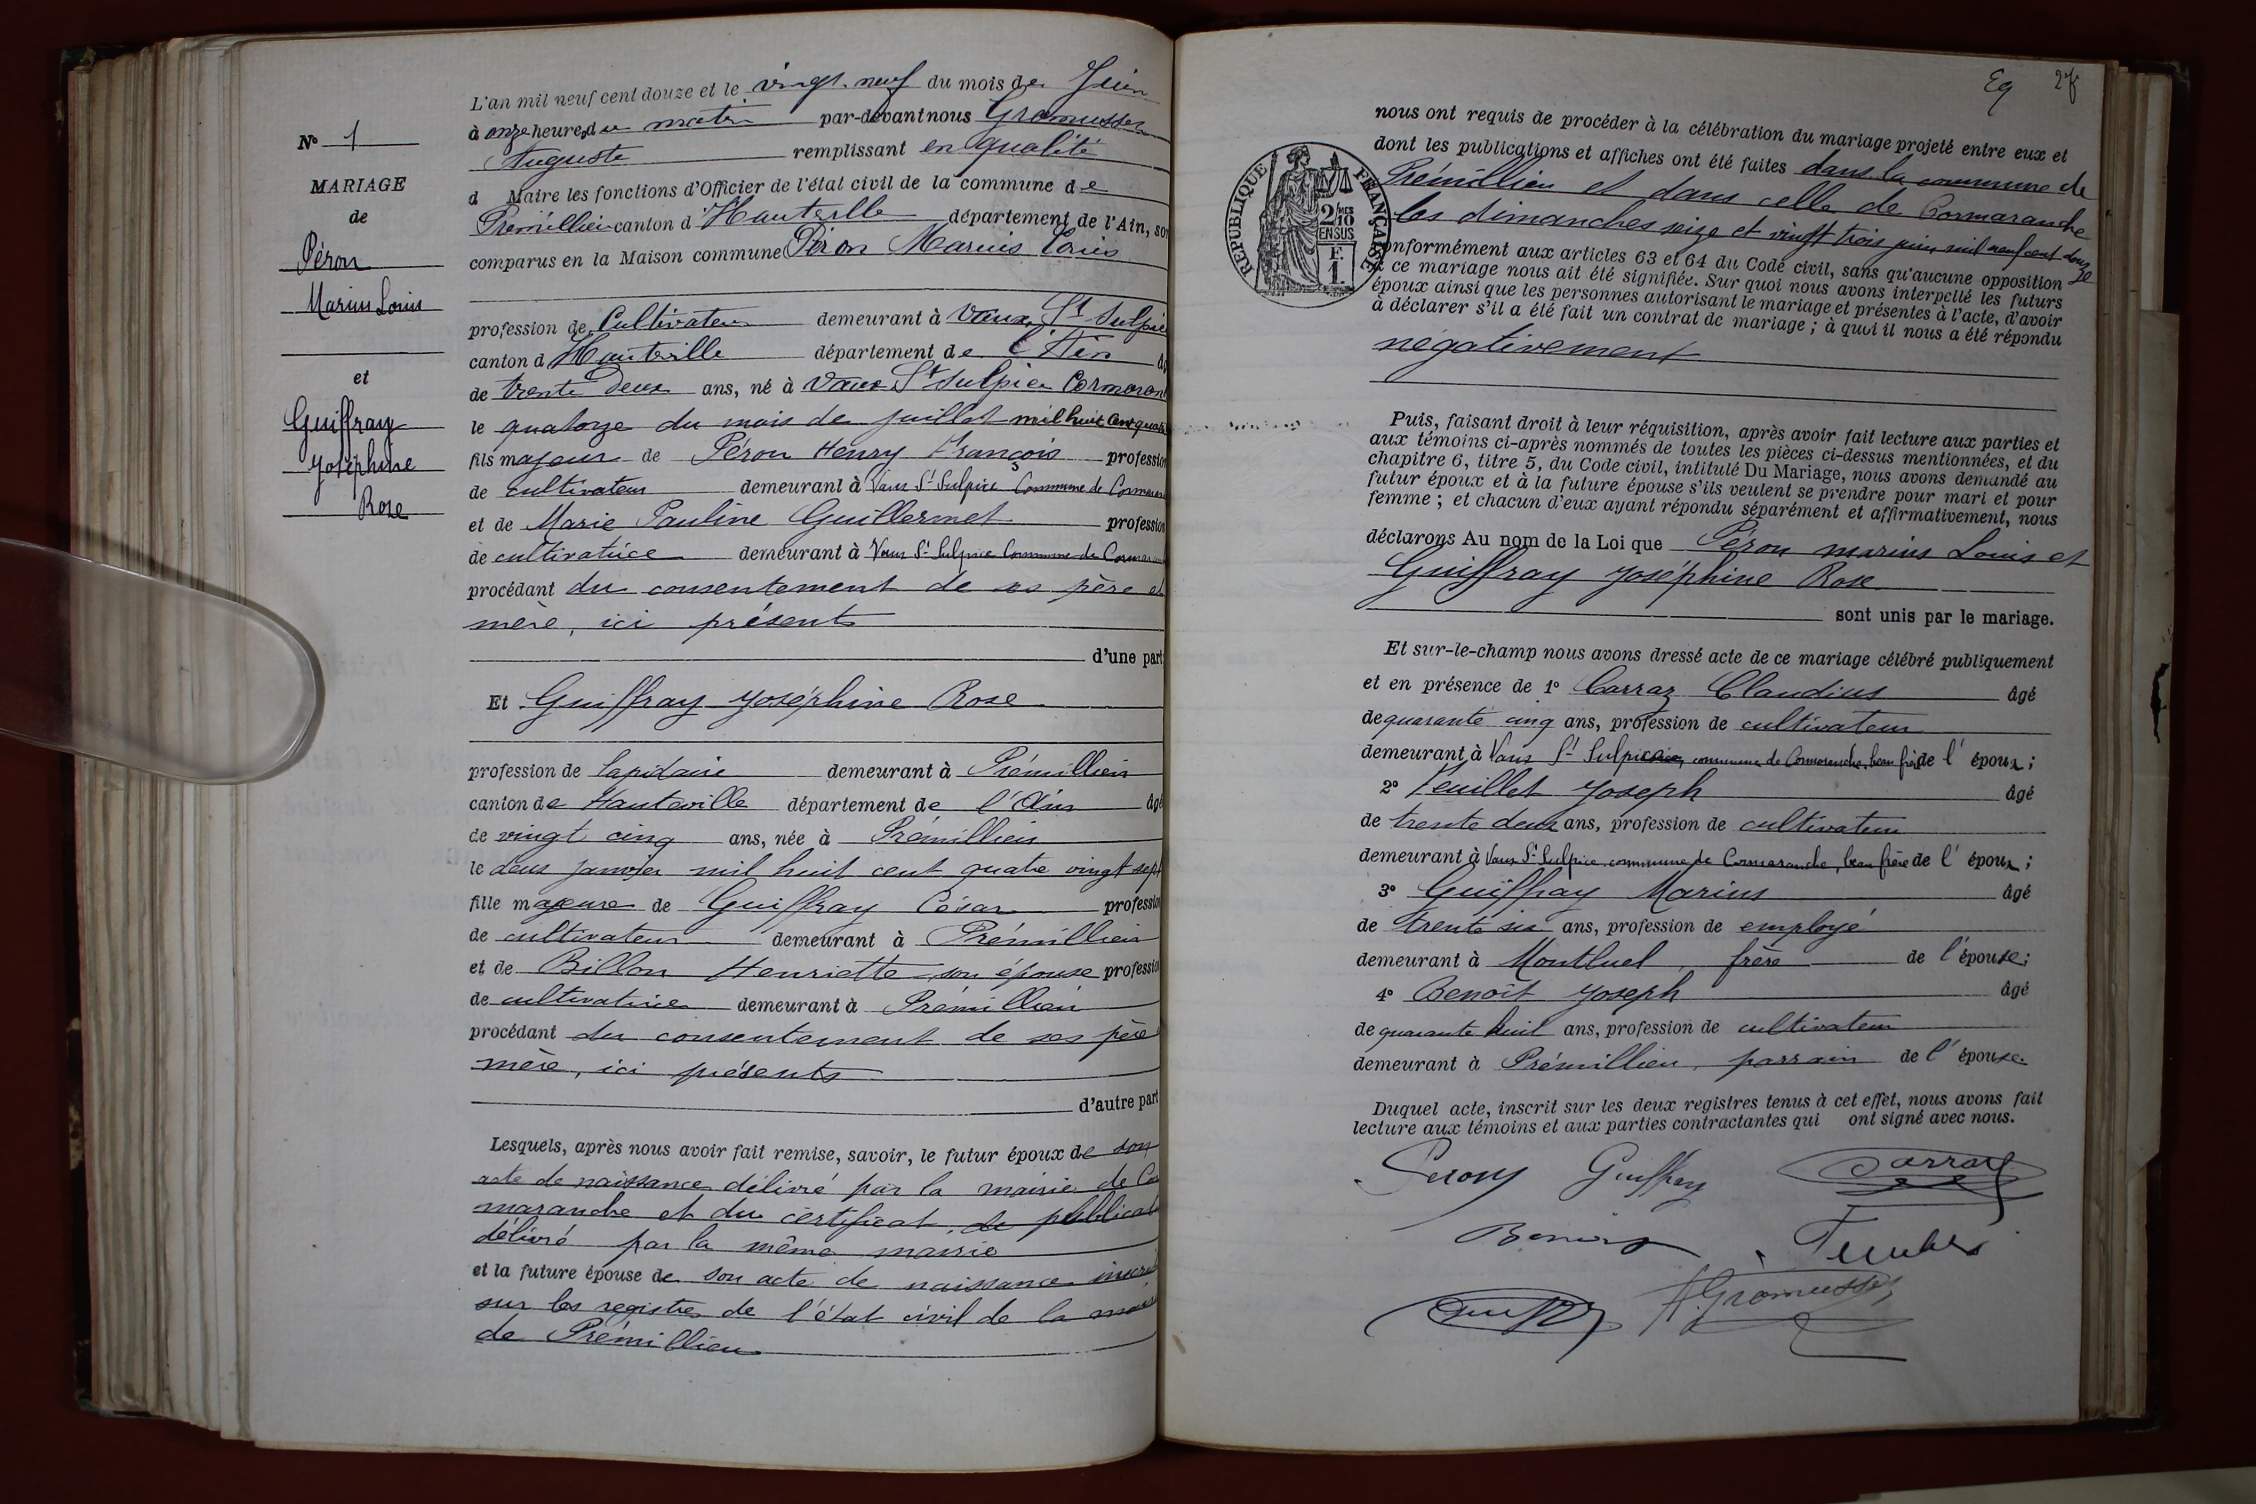 N° 1
MARIAGE
de
Péron
Marius Louis
et
Guiffray
Joséphine
Rose
L'an mil neuf cent douze et le vingt-neuf du mois de Juin
à onze heures du matin par-devant nous Gromusset
Auguste remplissant en qualité
d Maire les fonctions d'Officier de l'état civil de la commune de
Prémillieu canton d'Hauteville département de l'Ain, son
comparus en la Maison commune Péron Marius Louis
profession de Cultivateur demeurant à Vaux St Sulpice
canton d'Hauteville département de l'Ain âg
de trente deux ans, né à Vaux St Sulpice Cormaran
le quatorze du mois de juillet mil huit cent quat
fils majeur de Péron Henry François profession
de cultivateur demeurant à Vaux St Sulpice Commune de Cormaran
et de Marie Pauline Guillermet profession
de cultivatrice demeurant à Vaux St Sulpice Commune de Cormaran
procédant du consentement de ses père et
mère, ici présents
d'une part
Et Guiffray Joséphine Rose
profession de lapidaire demeurant à Prémillieu
canton de Hauteville département de l'Ain âgé
de vingt cinq ans, née à Prémillieu
le deux janvier mil huit cent quatre vingt sept
fille majeure de Guiffray César profession
de cultivateur demeurant à Prémillieu
et de Billon Henriette son épouse profession
de cultivatrice demeurant à Prémillieu
procédant du consentement de ses père
mère, ici présents
d'autre part
Lesquels, après nous avoir fait remise, savoir, le futur époux de son
acte de naissance délivré par la mairie de Cor
maranche et du certificat de publicat
délivré par la même mairie
et la future épouse de son acte de naissance inscrit
sur les registres de l'état civil de la mairie
de Prémillieu
Eg 27
nous ont requis de procéder à la célébration du mariage projeté entre eux et
dont les publications et affiches ont été faites dans la commune de
Prémillieu et dans celle de Cormaranche
les dimanches seize et vingt trois juin mil neuf cent douze
RÉPUBLIQUE FRANÇAISE
2/10
EN SUS
F.
1
conformément aux articles 63 et 64 du Code civil, sans qu'aucune opposition
à ce mariage nous ait été signifiée. Sur quoi nous avons interpellé les futurs
époux ainsi que les personnes autorisant le mariage et présentes à l'acte, d'avoir
à déclarer s'il a été fait un contrat de mariage ; à quoi il nous a été répondu
négativement
Puis, faisant droit à leur réquisition, après avoir fait lecture aux parties et
aux témoins ci-après nommés de toutes les pièces ci-dessus mentionnées, et du
chapitre 6, titre 5, du Code civil, intitulé Du Mariage, nous avons demandé au
futur époux et à la future épouse s'ils veulent se prendre pour mari et pour
femme ; et chacun d'eux ayant répondu séparément et affirmativement, nous
déclarons Au nom de la Loi que Péron marius Louis et
Guiffray Joséphine Rose
sont unis par le mariage.
Et sur-le-champ nous avons dressé acte de ce mariage célébré publiquement
et en présence de 1° Carraz Claudius âgé
de quarante cinq ans, profession de cultivateur
demeurant à Vaux St Sulpice, commune de Cormaranche, beau frère de l'époux ;
2° Feuillet Joseph âgé
de trente deux ans, profession de cultivateur
demeurant à Vaux St Sulpice commune de Cormaranche, beau frère de l'époux ;
3° Guiffray Marius âgé
de trente six ans, profession de employé
demeurant à Montluel, frère de l'épouse ;
4° Benoît Joseph âgé
de quarante huit ans, profession de cultivateur
demeurant à Prémillieu, parrain de l'épouse.
Duquel acte, inscrit sur les deux registres tenus à cet effet, nous avons fait
lecture aux témoins et aux parties contractantes qui ont signé avec nous.
Peron Guiffray Carraz
Benoit Feuillet
A. Gromusset